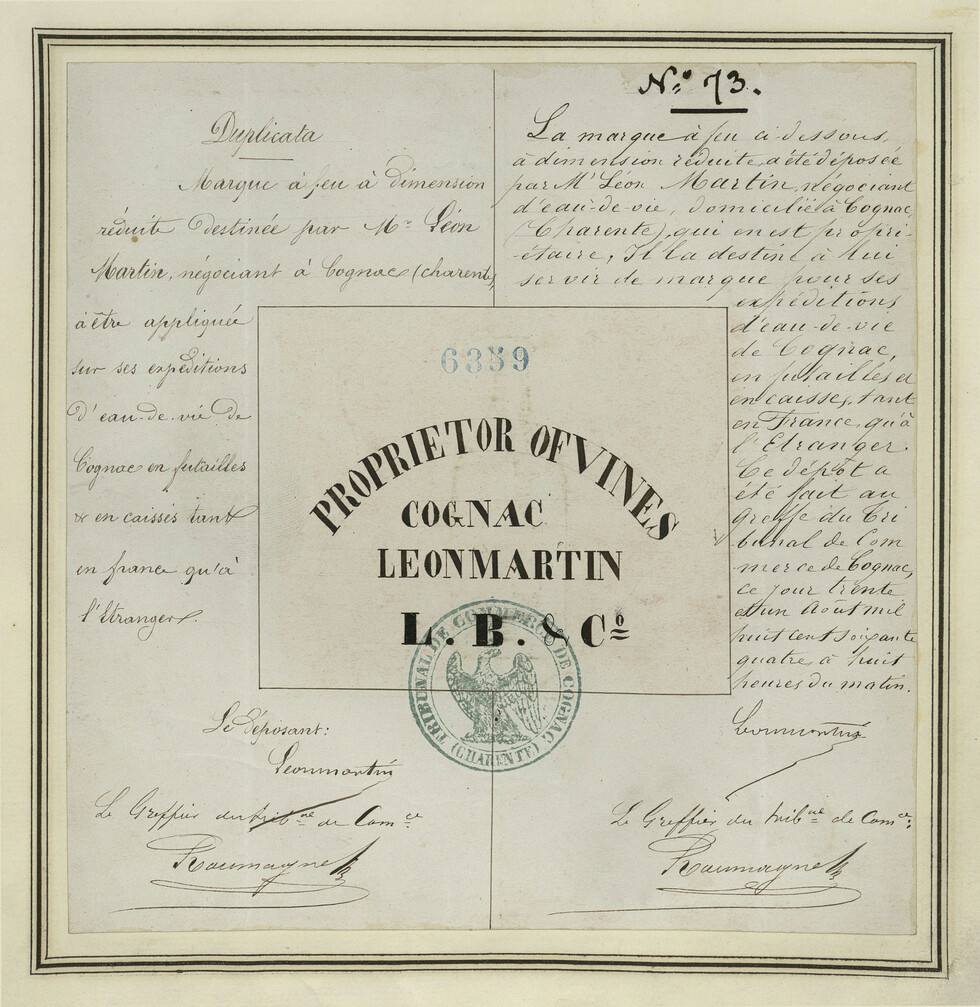 Duplicata
Marque à feu à dimension
réduite destinée par Mr Léon
Martin, négociant à Cognac (charente)
à être appliquée
sur ses expéditions
d'eau-de-vie de
Cognac en futailles
& en caisses tant
en france qu'à
l'Etranger.
No 73.
La marque à feu ci dessous,
à dimension réduite, a été déposée
par Mr Léon Martin, négociant
d'eau-de-vie, domicilié à Cognac
(Charente), qui en est proprié-
étaire, Il la destine à lui
servir de marque pour ses
expéditions
d'eau-de-vie
de Cognac,
en futailles et
en caisses, tant
en France, qu'à
l'Etranger.
Ce dépôt a
été fait au
greffe du Tri
bunal de Com
merce de Cognac,
ce jour trente
et un Août mil
huit cent soixante
quatre, à huit
heures du matin.
6359
PROPRIETOR OF VINES
COGNAC
LEONMARTIN
L. B. & Co
TRIBUNAL DE COMMERCE DE COGNAC
(CHARENTE)
Le déposant:
Leonmartin
Le Greffier du tribnal de Comce
Roumagne
Leonmartin
Le Greffier du tribnal de Comce:
Roumagne